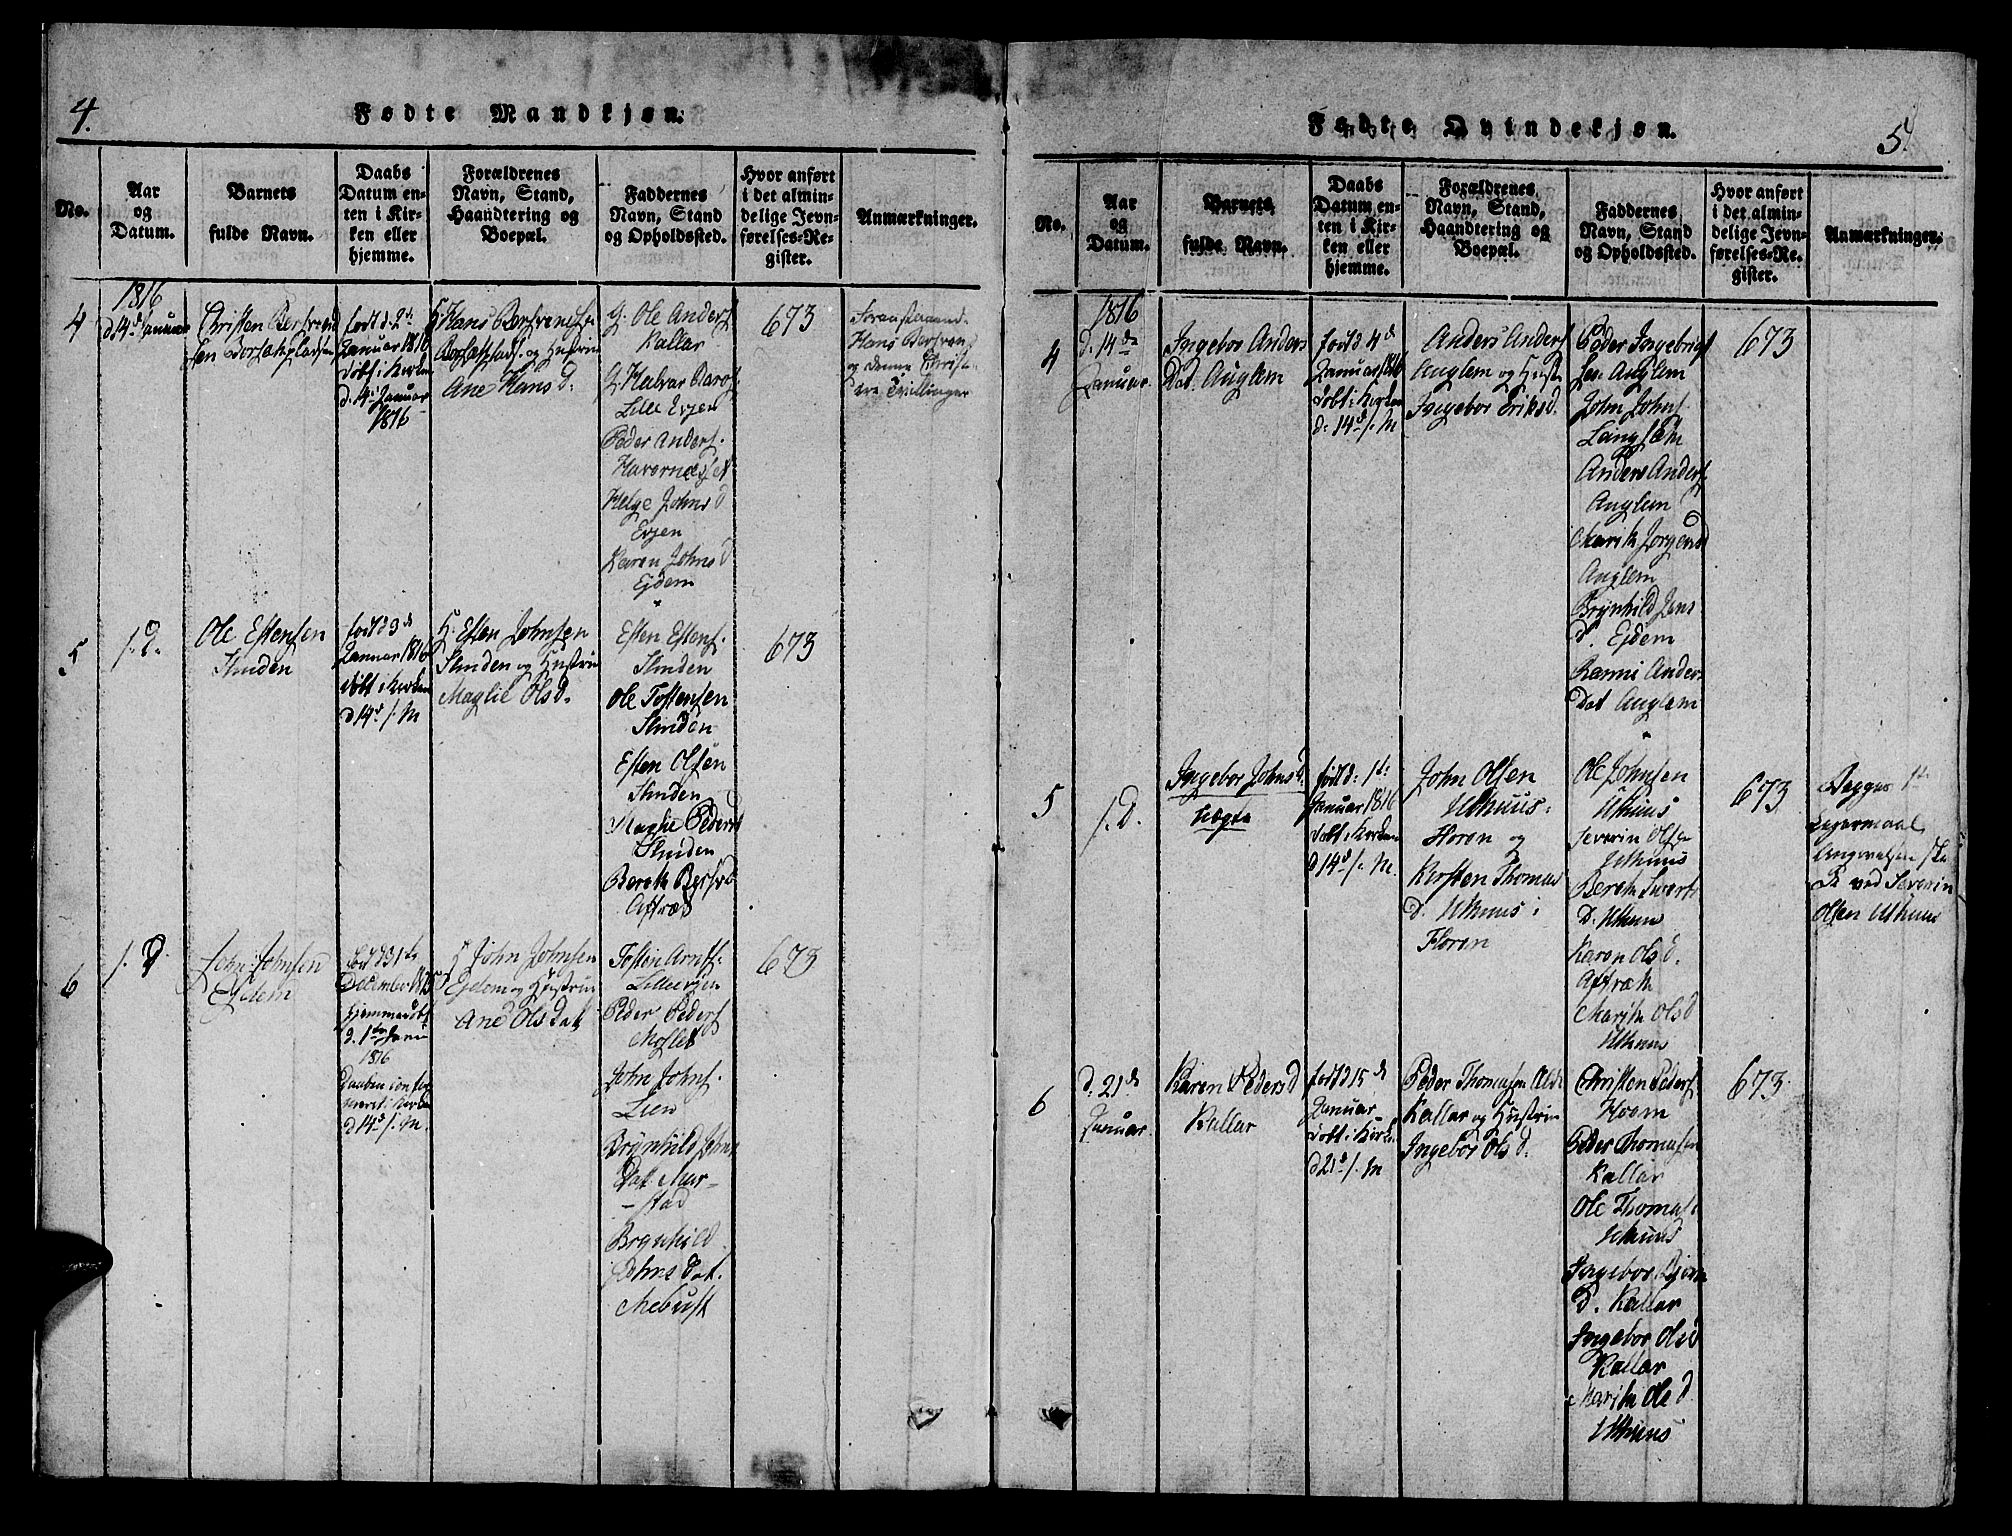 4.
Fødte Mandkjøn.
No.
Aar
og
Datum.
Barnets
fulde Navn.
Daabs
Datum en-
ten i Kir-
ken eller
hjemme.
Forældrenes
Navn, Stand,
Haandtering og
Boepæl.
Faddernes
Navn, Stand
og Opholdssted.
Hvor anført
i det almin-
delige Jevn-
førelses-Re-
gister.
Anmærkninger.
4
1816
d. 14d Januar
Christen Bersvend
sen Borsætpladsen
født d. 2d
Januar 1816
døbt i Kirken
d. 14d Januar
1816
Hans Bersvends.
og Hustrue
Ane Hans d.
G. Ole Anders.
Kallar
G. Halvar
Lille Evjen
Peder Anders.
Havernesset
Helge Johns d
Evjen
Karen Johns d
Ejdem
673
Foranstaaend.
Hans Bersvend
og denne Christ-
en Tvillinger
5
s. D.
Ole Estensen
Slinden
født d 3d
Januar 1816
døbt i Kirken
d 14d s. M
Esten Johnsen
Slinden og Hustrue
Maglie Ols d.
Esten Estens.
Slinden
Ole Tostensen
Slinden
Esten Olsen
Slinden
Maglie Peders d
Slinden
Bereth Bersvd
Aftræd
673
6
s. D
John Johnsen
Ejdem
født d 31te
December 1815
hjemmedøbt
d. 1te Janu
1816
Daaben confir
meret i Kirken
d 14d s. M.
John Johnsen
Ejdem og Hustrue
Ane Ols Dat
Tosten Arnts.
Lilleevjen
Peder Peders.
Moslet
John Johns.
Lien
Brynhild Johns
Dat. Mar-
-stad
Brynhild
Johns Dat.
Mebust
673
5
Fødte Qvindekjøn.
No.
Aar
og
Datum.
Barnets
fulde Navn.
Daabs
Datum en-
ten i Kir-
ken eller
hjemme.
Forældrenes
Navn, Stand,
Haandtering og
Boepæl.
Faddernes
Navn, Stand
og Opholdssted.
Hvor anført
i det almin-
delige Jevn-
førelses-Re-
gister.
Anmærkninger.
4
1816
d. 14de
Januar.
Ingebor Anders
Dat. Auglem
født d 4d
Januar 1816
døbt i Kirken
d: 14d s. M
Anders Anders.
Auglem og Hust.
Ingebor Eriks d.
Peder Ingebrigt
sen Auglem
John Johns.
Langslet
Anders Anders.
Auglem
Marith Jørgens d
Auglem
Brynhild Jens
d. Ejdem
Ranni Anders
Dat Auglem
673
5
s. D.
Ingebor Johns d.
uægte
født d: 1te
Januar 1816
døbt i Kirken
d 14d s. M.
John Olsen
Uthuus:
Floren og
Kirsten Thomas
D. Uthuus i
Floren
Ole Johnsen
Uthuus
Severin Olsen
Uthuus
Bereth Siverts
D. Uthuus
Karen Ols d.
Aftræth
Marith Ols d
Uthuus
673
Begges 1te
Lejermaal
Angivelsen ske
de ved Severin
Olsen Uthuus
6
d. 21de
Januar.
Karen Peders D
Kallar
født d 15de
Januar
døbt i Kirken
d 21d s. M
Peder Thomasen
Kallar og Hustrue
Ingebor Ols D.
Christen Peders.
Hoem
Peder Thomasen
Kallar
Ole Thomas.
Uthuus
Ingebor Bjørn
D. Kallar
Ingebor Ols d
Kallar
Marith Ole D
Uthuus
673.